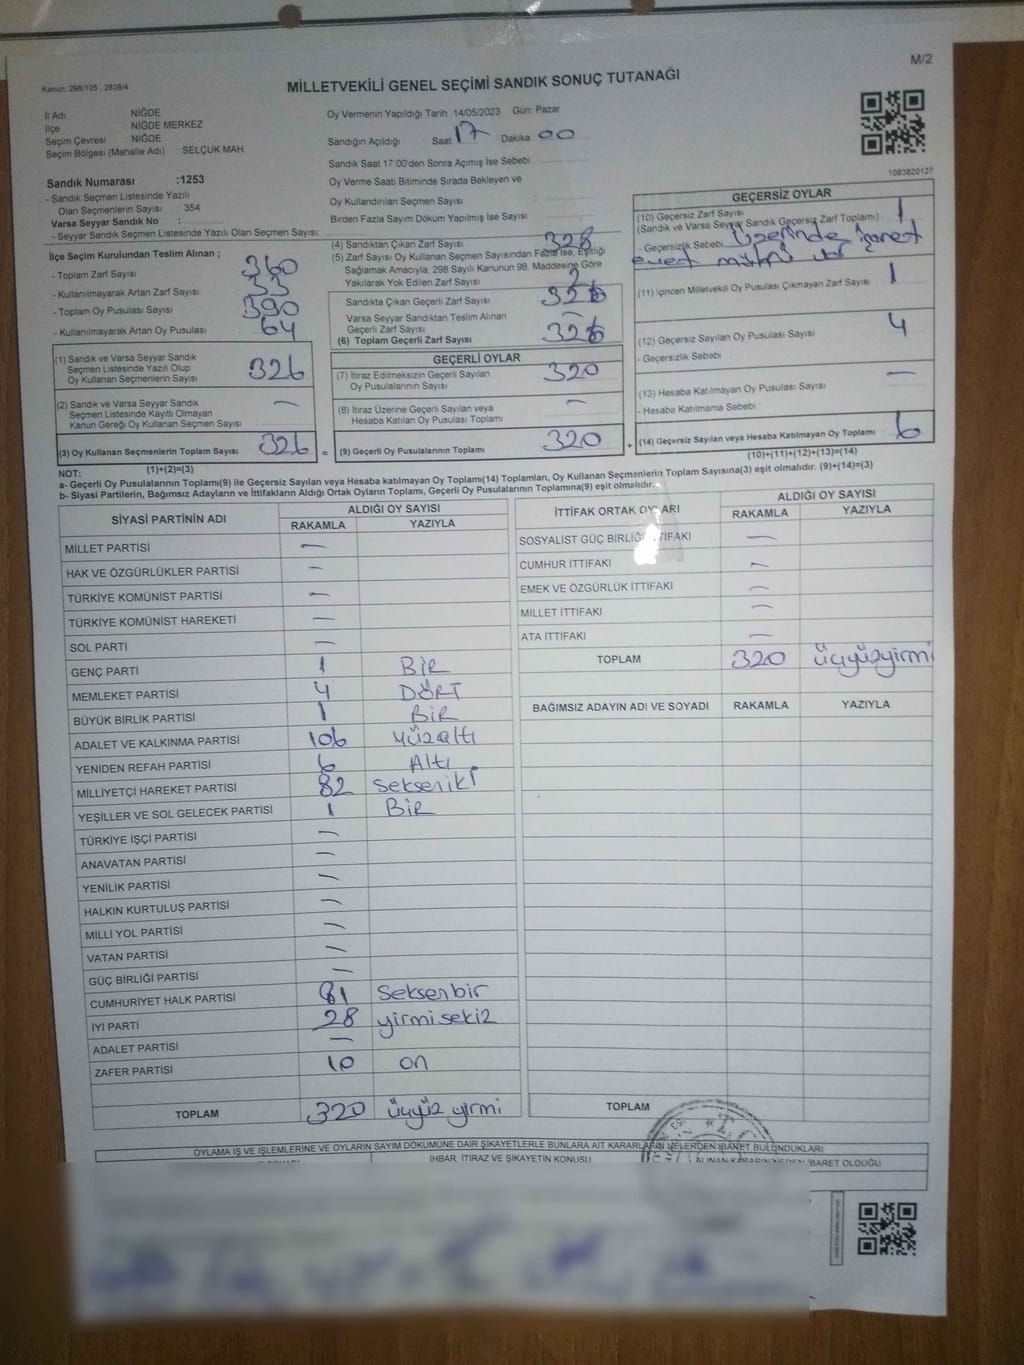 M/2
Kanun: 298/105 , 2839/4
MİLLETVEKİLİ GENEL SEÇİMİ SANDIK SONUÇ TUTANAĞI
İl Adı NİĞDE
İlçe NİĞDE MERKEZ
Seçim Çevresi NİĞDE
Seçim Bölgesi (Mahalle Adı) SELÇUK MAH.
Oy Vermenin Yapıldığı Tarih :14/05/2023 Gün: Pazar
Sandığın Açıldığı Saat 17 Dakika 00
Sandık Saat 17:00'den Sonra Açımış İse Sebebi
Oy Verme Saati Bitiminde Sırada Bekleyen ve
Oy Kullandırılan Seçmen Sayısı
Birden Fazla Sayım Döküm Yapılmış İse Sayısı
1083820127
Sandık Numarası :1253
- Sandık Seçmen Listesinde Yazılı
Olan Seçmenlerin Sayısı : 354
Varsa Seyyar Sandık No :
- Seyyar Sandık Seçmen Listesinde Yazılı Olan Seçmen Sayısı:
İlçe Seçim Kurulundan Teslim Alınan ;
- Toplam Zarf Sayısı 360
- Kullanılmayarak Artan Zarf Sayısı 33
- Toplam Oy Pusulası Sayısı 390
- Kullanılmayarak Artan Oy Pusulası 64
(1) Sandık ve Varsa Seyyar Sandık
Seçmen Listesinde Yazılı Olup
Oy Kullanan Seçmenlerin Sayısı 326
(2) Sandık ve Varsa Seyyar Sandık
Seçmen Listesinde Kayıtlı Olmayan
Kanun Gereği Oy Kullanan Seçmen Sayısı —
(3) Oy Kullanan Seçmenlerin Toplam Sayısı 326 =
(1)+(2)=(3)
(4) Sandıktan Çıkan Zarf Sayısı 328
(5) Zarf Sayısı Oy Kullanan Seçmen Sayısından Fazla İse, Eşitliği
Sağlamak Amacıyla; 298 Sayılı Kanunun 98. Maddesine Göre
Yakılarak Yok Edilen Zarf Sayısı 2
Sandıkta Çıkan Geçerli Zarf Sayısı 326
Varsa Seyyar Sandıktan Teslim Alınan
Geçerli Zarf Sayısı —
(6) Toplam Geçerli Zarf Sayısı 326
GEÇERLİ OYLAR
(7) İtiraz Edilmeksizin Geçerli Sayılan
Oy Pusulalarının Sayısı 320
(8) İtiraz Üzerine Geçerli Sayılan veya
Hesaba Katılan Oy Pusulası Toplamı —
(9) Geçerli Oy Pusulalarının Toplamı 320 +
GEÇERSİZ OYLAR
(10) Geçersiz Zarf Sayısı 1
(Sandık ve Varsa Seyyar Sandık Geçersiz Zarf Toplamı)
- Geçersizlik Sebebi Üzerinde işaret
evet mührü
(11) İçinden Milletvekili Oy Pusulası Çıkmayan Zarf Sayısı 1
(12) Geçersiz Sayılan Oy Pusulası Sayısı 4
- Geçersizlik Sebebi :
(13) Hesaba Katılmayan Oy Pusulası Sayısı —
- Hesaba Katılmama Sebebi
(14) Geçersiz Sayılan veya Hesaba Katılmayan Oy Toplamı 6
(10)+(11)+(12)+(13)=(14)
NOT:
a- Geçerli Oy Pusulalarının Toplamı(9) ile Geçersiz Sayılan veya Hesaba katılmayan Oy Toplamı(14) Toplamları, Oy Kullanan Seçmenlerin Toplam Sayısına(3) eşit olmalıdır. (9)+(14)=(3)
b- Siyasi Partilerin, Bağımsız Adayların ve İttifakların Aldığı Ortak Oyların Toplamı, Geçerli Oy Pusulalarının Toplamına(9) eşit olmalıdır.
SİYASİ PARTİNİN ADI ALDIĞI OY SAYISI
RAKAMLA YAZIYLA
MİLLET PARTİSİ —
HAK VE ÖZGÜRLÜKLER PARTİSİ —
TÜRKİYE KOMÜNİST PARTİSİ —
TÜRKİYE KOMÜNİST HAREKETİ —
SOL PARTİ —
GENÇ PARTİ 1 BİR
MEMLEKET PARTİSİ 4 DÖRT
BÜYÜK BİRLİK PARTİSİ 1 BİR
ADALET VE KALKINMA PARTİSİ 106 yüzaltı
YENİDEN REFAH PARTİSİ 6 Altı
MİLLİYETÇİ HAREKET PARTİSİ 82 sekseniki
YEŞİLLER VE SOL GELECEK PARTİSİ 1 BİR
TÜRKİYE İŞÇİ PARTİSİ —
ANAVATAN PARTİSİ —
YENİLİK PARTİSİ —
HALKIN KURTULUŞ PARTİSİ —
MİLLİ YOL PARTİSİ —
VATAN PARTİSİ —
GÜÇ BİRLİĞİ PARTİSİ —
CUMHURİYET HALK PARTİSİ 81 seksenbir
İYİ PARTİ 28 yirmisekiz
ADALET PARTİSİ —
ZAFER PARTİSİ 10 on
TOPLAM 320 üçyüz yirmi
İTTİFAK ORTAK OYLARI ALDIĞI OY SAYISI
RAKAMLA YAZIYLA
SOSYALİST GÜÇ BİRLİĞİ İTTİFAKI —
CUMHUR İTTİFAKI —
EMEK VE ÖZGÜRLÜK İTTİFAKI —
MİLLET İTTİFAKI —
ATA İTTİFAKI —
TOPLAM 320 üçyüzyirmi
BAĞIMSIZ ADAYIN ADI VE SOYADI RAKAMLA YAZIYLA
TOPLAM
OYLAMA İŞ VE İŞLEMLERİNE VE OYLARIN SAYIM DÖKÜMÜNE DAİR ŞİKAYETLERLE BUNLARA AİT KARARLARIN NELERDEN İBARET BULUNDUKLARI
İHBAR, İTİRAZ VE ŞİKAYETİN KONUSU
ALINAN KARARIN NEDEN İBARET OLDUĞU